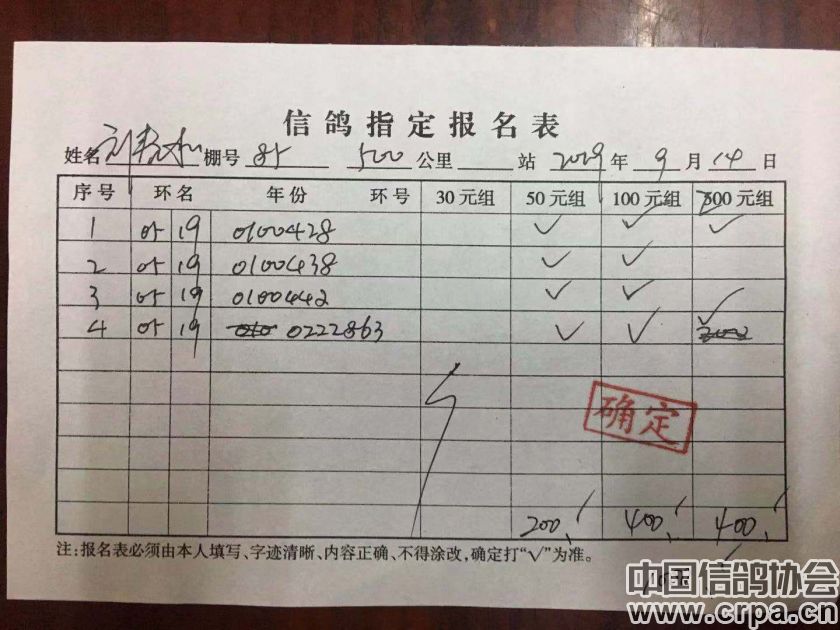 信鸽指定报名表
姓名 棚号 85 500 公里 站 2019 年 9 月 14 日
序号 环名 年份 环号 30元组 50元组 100元组 00元组
1 05 19 0100428 ✓ ✓ ✓
2 05 19 0100438 ✓ ✓
3 05 19 0100442 ✓ ✓
4 05 19 0222863 ✓ ✓ ✓
确定
200 400 400
注:报名表必须由本人填写、字迹清晰、内容正确、不得涂改,确定打“√”为准。
中国信鸽协会
www.crpa.cn